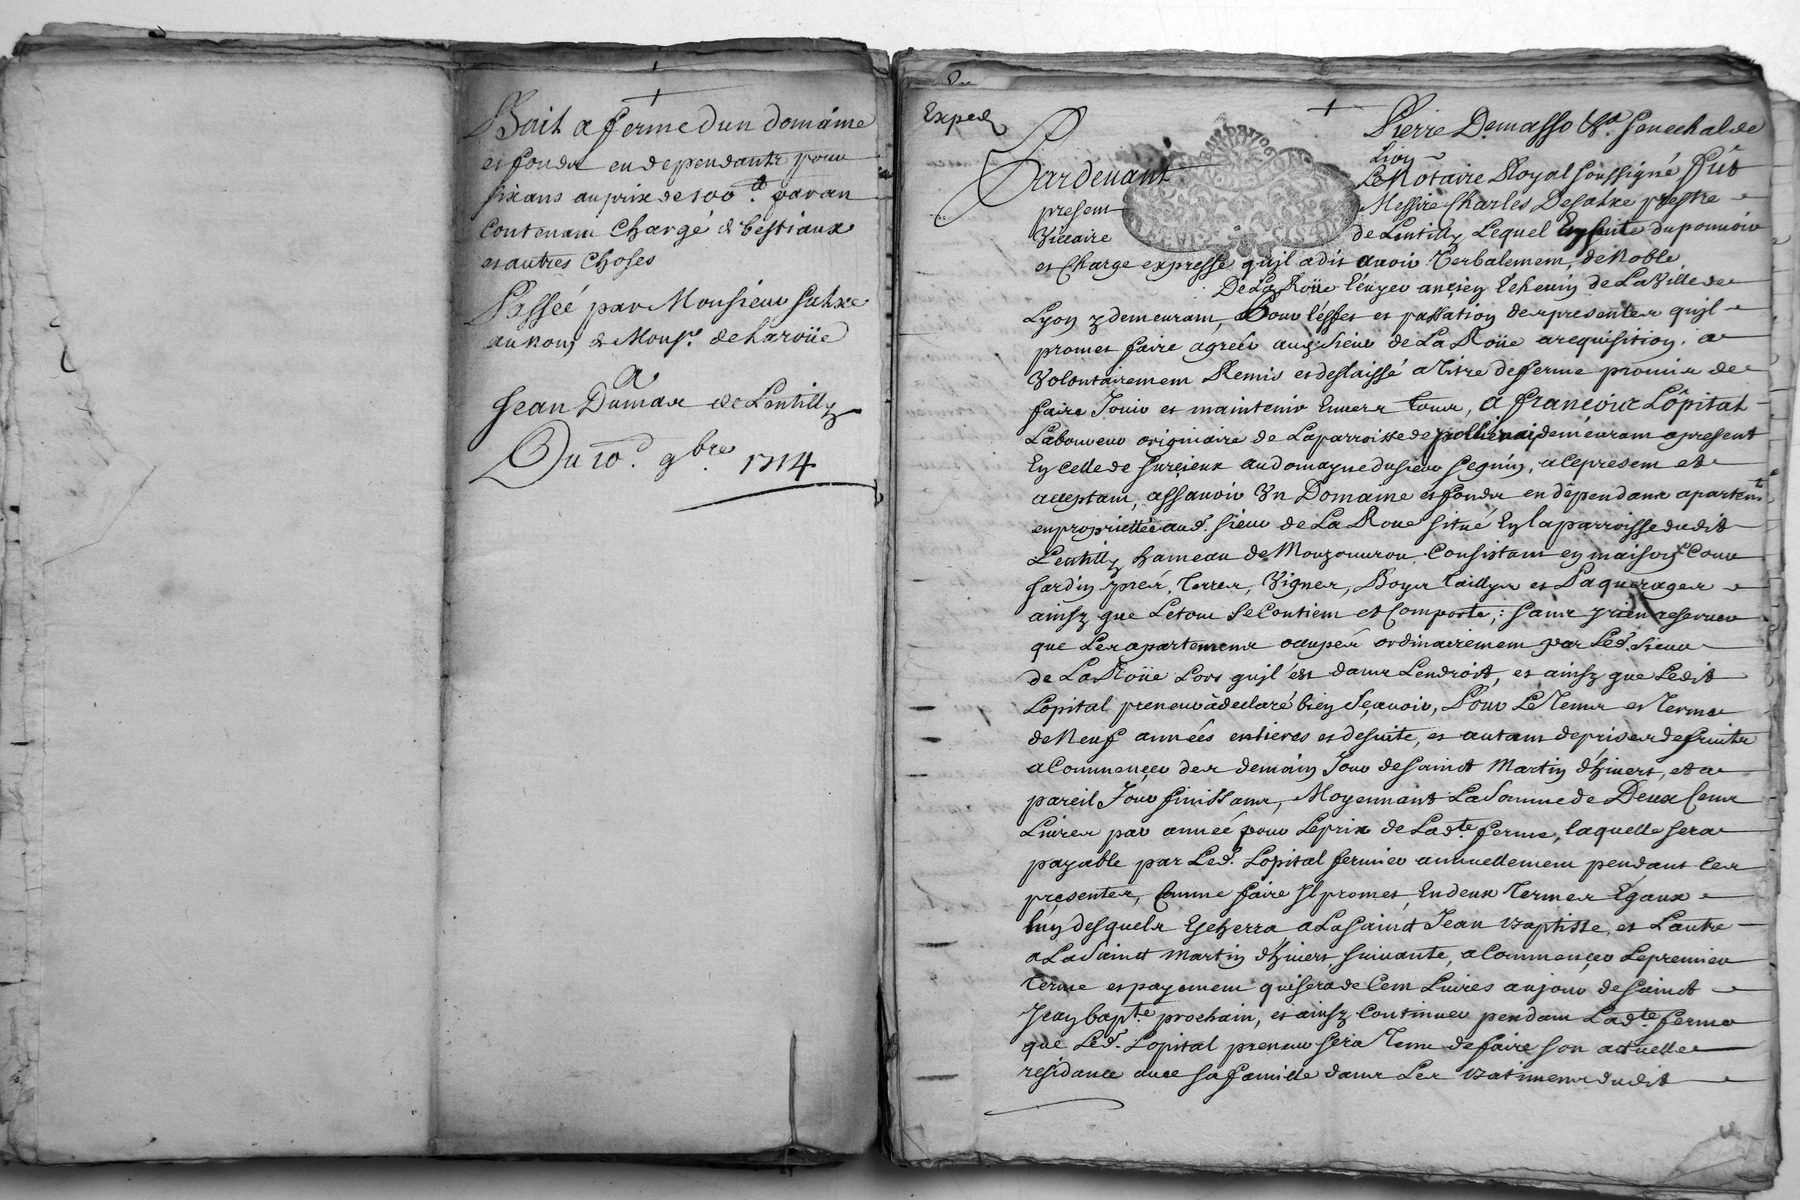 Bail a ferme dun domaine
et fondz en dependantz pour
six ans au prix de 100ᵗᵗ par an
Contenant Chargé de bestiaux
et autres Choses
Passeé par Monsieur
au nom de Monsr. de Laroüe
A
Jean Dumas de Lentilly
Du 10e. 9bre 1714
Exped
Pierre Demasso &a. Senechal de
Lion
Pardevant Le Notaire Royal soussigné Fut
present Messire Charles prestre
Viccaire de Lentilly Lequel Ensuite du pouvoir
et Charge expresse quil a dit avoir Verbalement, de Noble
De La Roüe Ecuyer ancien Echevin de La Ville de
Lyon y demeurant, Pour l'effet et passation des presentes quil
promet faire agreer audt Sieur de La Roüe a requisition, a
Volontairement Remis et deslaissé a Titre de ferme promis de
faire Jouir et maintenir Envers tous, a françois Lôpital
Laboureur originaire de La parroisse de pollienai demeurant a present
En celle de Surcieux au domayne du sieur Seguin, a ce present et
acceptant, assavoir Un Domaine et fondz en dependant apartent
en proprietté aud. sieur de La Roue situé En la parroisse dudit
Lentilly hameau de Consistant en maison Cour
Jardin prés, Terres, Vignes, Boys Taillys et Paquerages
ainsy que Le tout Se Contient et Comporte; sans y rien reserver
que Les apartements ocupés ordinairement par Led. Sieur
de La Roüe Lors quil est dans Lendroit, et ainsy que Ledit
Lopital preneur à declaré bien Sçavoir, Pour Le Tems et Terme
de Neuf années entieres et de suite, et autant de prises de fruits
a Commencer des demain Jour de Saint Martin d'hivert, et a
pareil Jour finissant, Moyennant La Somme de Deux Cens
Livres par année pour Le prix de Ladte ferme, laquelle sera
payable par Led. Lopital fermier annuellement pendant Les
presentes, Comme faire Il promet, En deux Termes Egaux
luy desquels Echerra a La Saint Jean Baptiste, et L'autre
a La Saint Martin d'hivert suivante, a Commencer Le premier
Terme et payement qui sera de Cent Livres au jour de Saint
Jean bapte. prochain, et ainsy Continuer pendant Ladte. ferme
que Led. Lopital preneur sera Tenu de faire son actuelle
residance avec sa famille dans Les Batimens dudit